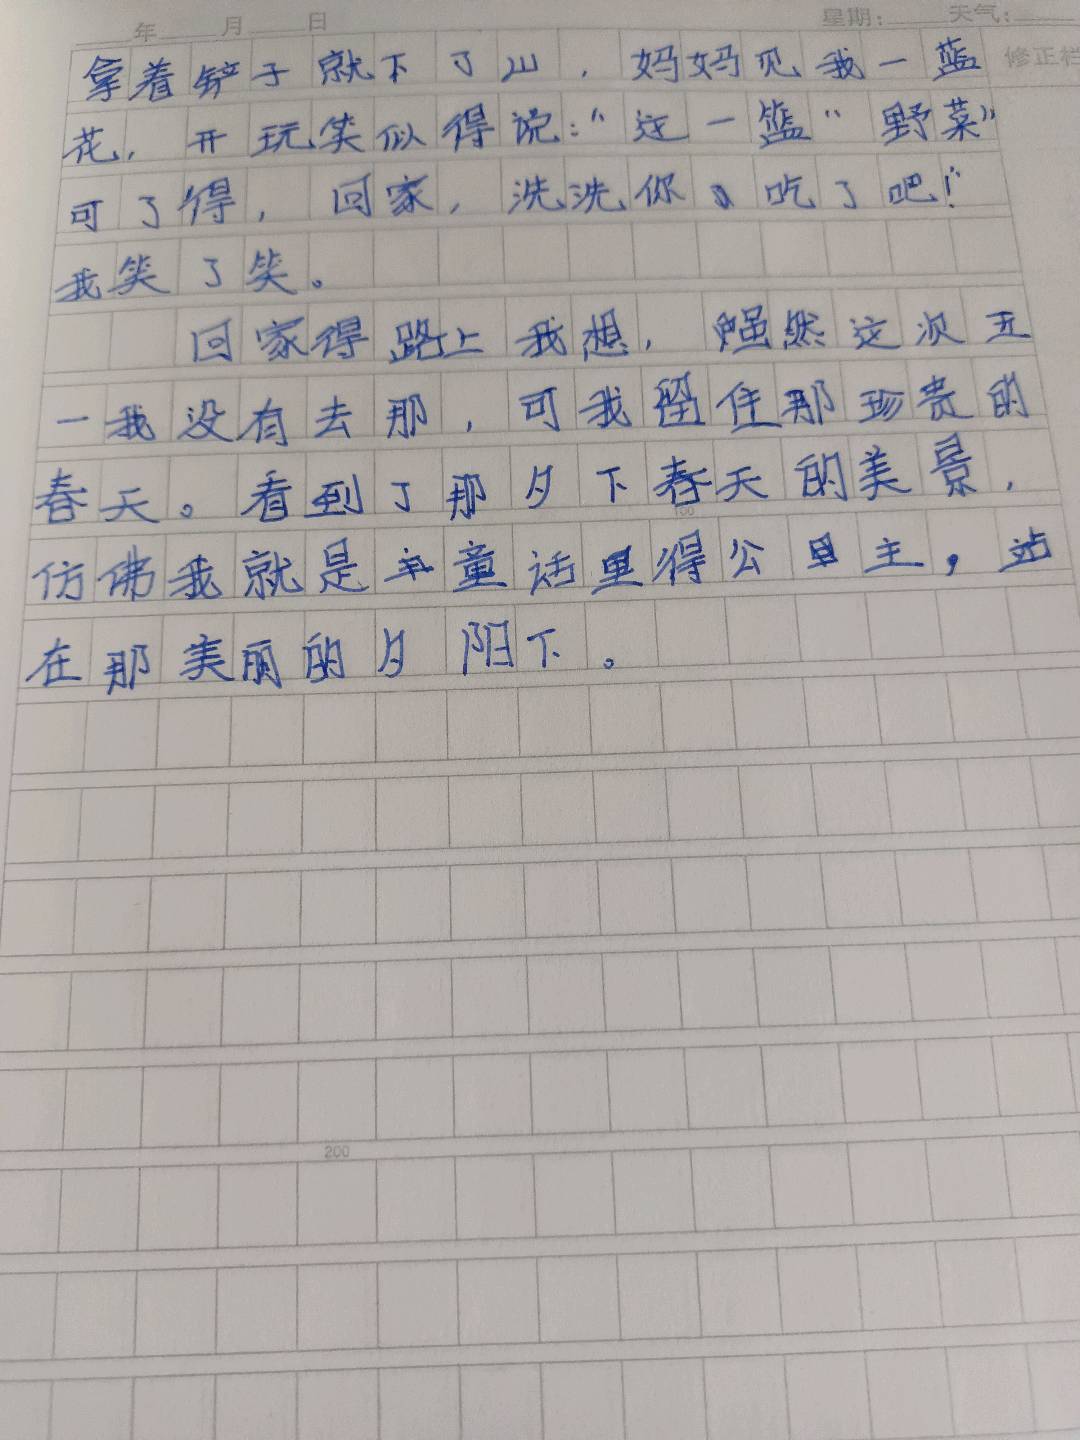 年 月 日 星期: 天气:
修正栏
拿着铲子就下了山,妈妈见我一蓝
花,开玩笑似得说:“这一篮“野菜”
可了得,回家,洗洗你 吃了吧!”
我笑了笑。
回家得路上我想,虽然这次五
一我没有去那,可我留住那珍贵的
春天。看到了那夕下春天的美景,
仿佛我就是 童话里得公主,站
在那美丽的夕阳下。
100
200